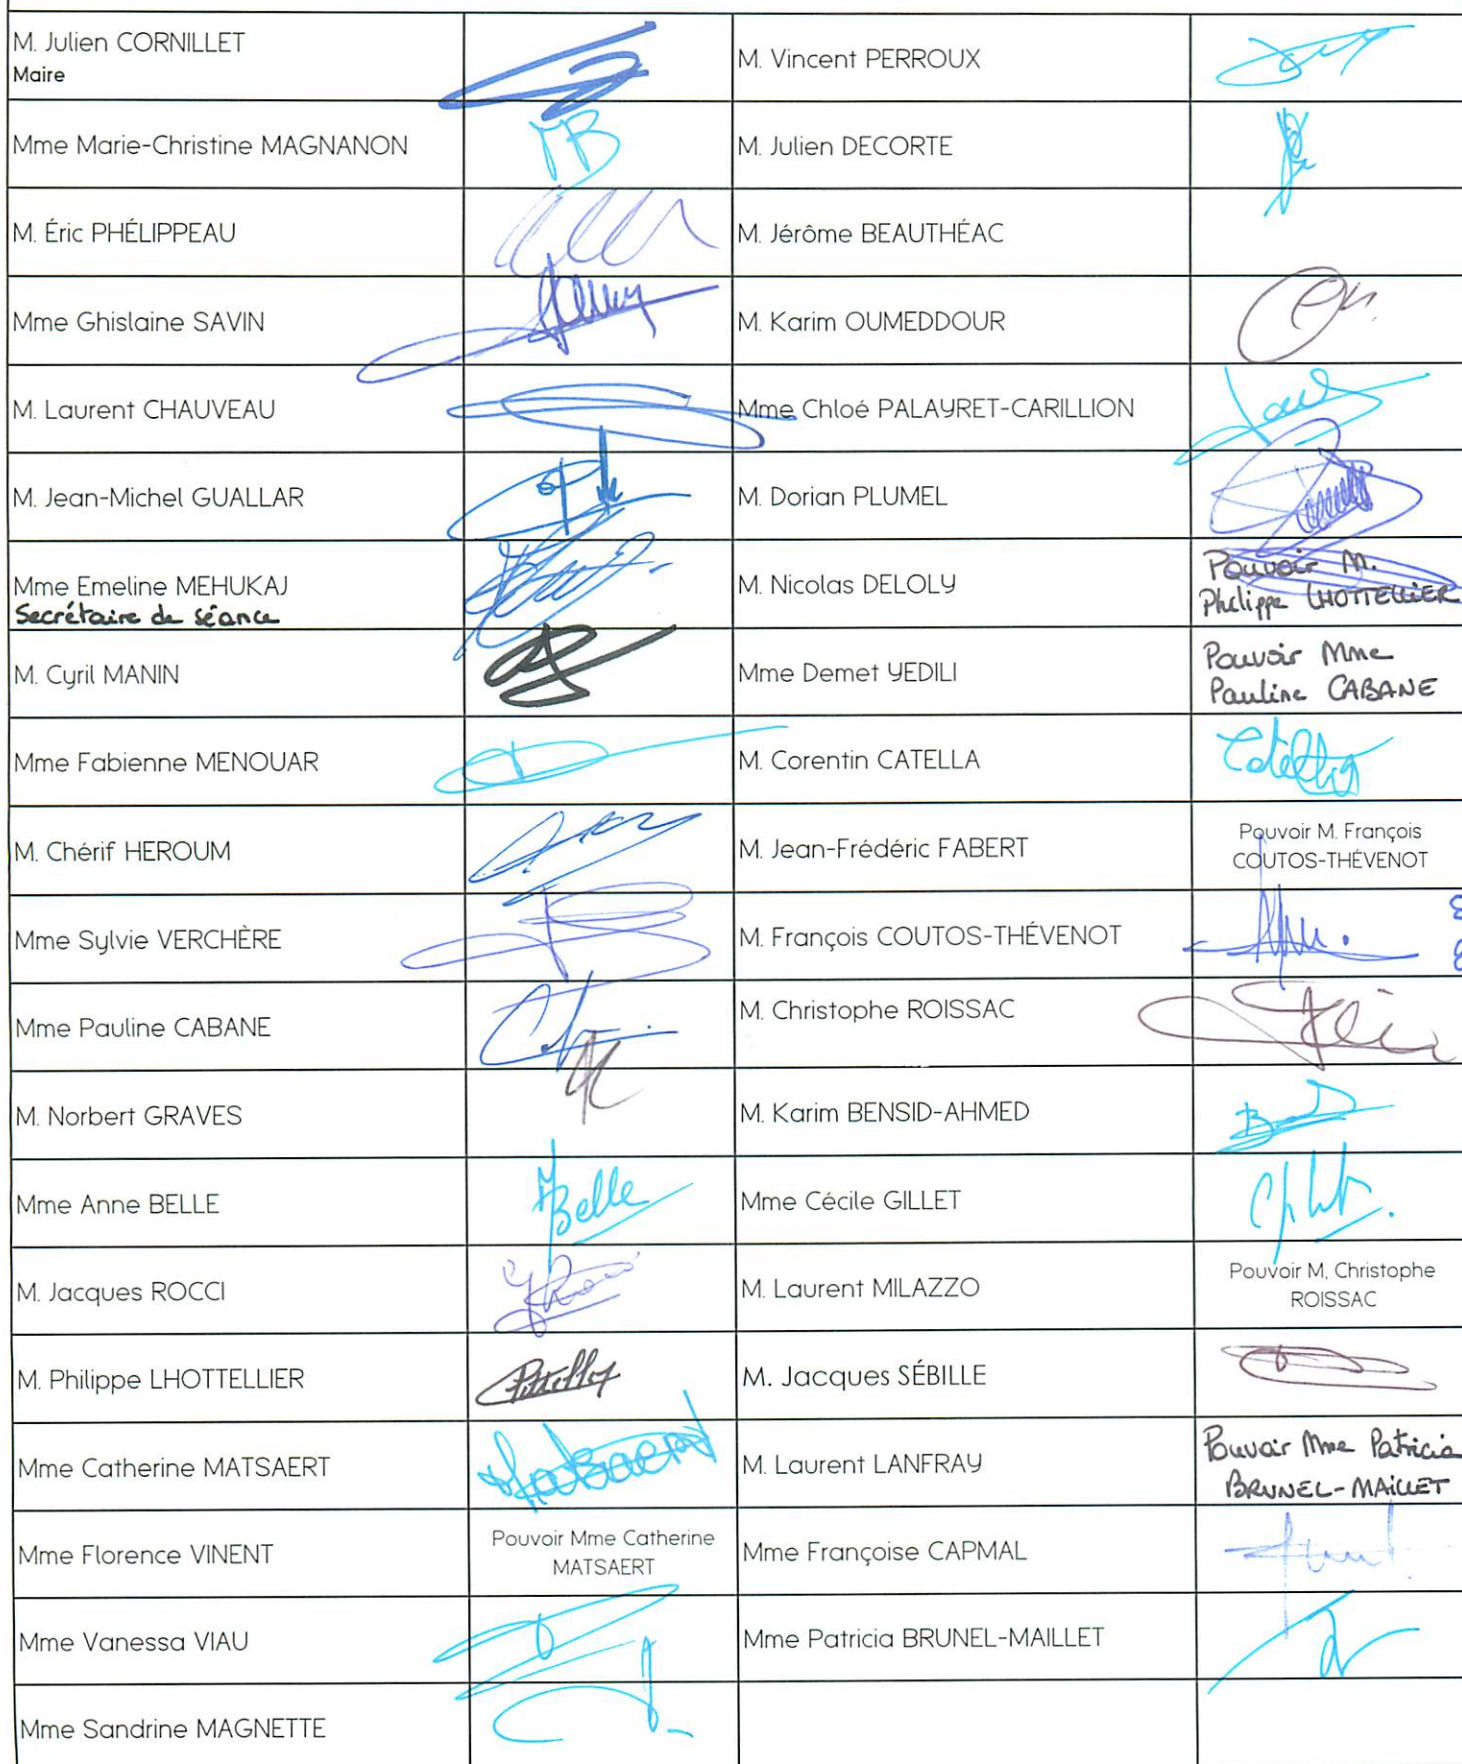 M. Julien CORNILLET
Maire
M. Vincent PERROUX
Mme Marie-Christine MAGNANON
MB
M. Julien DECORTE
M. Éric PHÉLIPPEAU
M. Jérôme BEAUTHÉAC
Mme Ghislaine SAVIN
M. Karim OUMEDDOUR
M. Laurent CHAUVEAU
Mme Chloé PALAYRET-CARILLION
M. Jean-Michel GUALLAR
M. Dorian PLUMEL
Mme Emeline MEHUKAJ
Secrétaire de séance
M. Nicolas DELOLY
Pouvoir M.
Philippe LHOTTELLIER
M. Cyril MANIN
Mme Demet YEDILI
Pouvoir Mme
Pauline CABANE
Mme Fabienne MENOUAR
M. Corentin CATELLA
M. Chérif HEROUM
M. Jean-Frédéric FABERT
Pouvoir M. François
COUTOS-THÉVENOT
Mme Sylvie VERCHÈRE
M. François COUTOS-THÉVENOT
Mme Pauline CABANE
M. Christophe ROISSAC
M. Norbert GRAVES
M. Karim BENSID-AHMED
Mme Anne BELLE
Belle
Mme Cécile GILLET
M. Jacques ROCCI
M. Laurent MILAZZO
Pouvoir M. Christophe
ROISSAC
M. Philippe LHOTTELLIER
M. Jacques SÉBILLE
Mme Catherine MATSAERT
Matsaert
M. Laurent LANFRAY
Pouvoir Mme Patricia
BRUNEL-MAILLET
Mme Florence VINENT
Pouvoir Mme Catherine
MATSAERT
Mme Françoise CAPMAL
Mme Vanessa VIAU
Mme Patricia BRUNEL-MAILLET
Mme Sandrine MAGNETTE